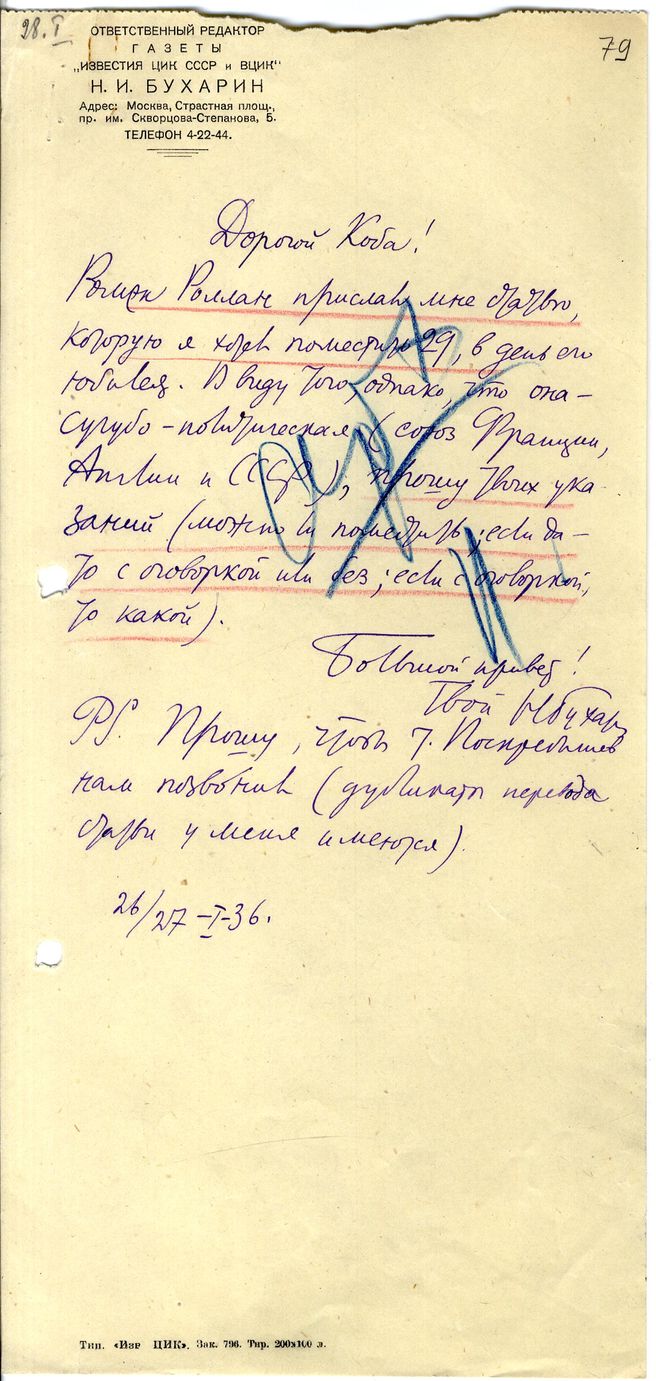 28.I
79
ОТВЕТСТВЕННЫЙ РЕДАКТОР
ГАЗЕТЫ
„ИЗВЕСТИЯ ЦИК СССР и ВЦИК“
Н. И. БУХАРИН
Адрес: Москва, Страстная площ.,
пр. им. Скворцова-Степанова, 5.
ТЕЛЕФОН 4-22-44.
Дорогой Коба!
Ромэн Роллан прислал мне статью,
которую я хотел поместить 29, в день его
юбилея. В виду того, однако, что она –
сугубо-политическая (союз Франции,
Англии и СССР), прошу твоих ука-
заний (можно ли поместить; если да –
то с оговоркой или без; если с оговоркой,
то какой).
Большой привет!
Твой Н Бухарин
PS. Прошу, чтобы т. Поскребышев
нам позвонил (дубликаты перевода
статьи у меня имеются).
26/27–I–36.
Тип. «Изв ЦИК». Зак. 796. Тир. 200х100 л.